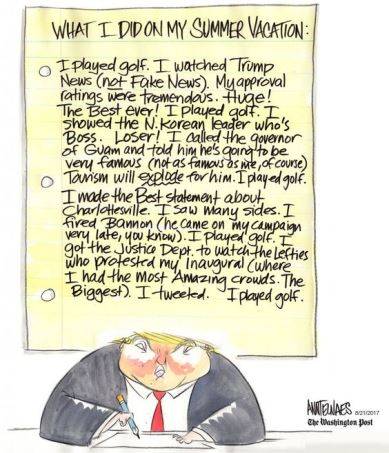 WHAT I DID ON MY SUMMER VACATION:
I played golf. I watched Trump
News (not Fake News). My approval
ratings were Tremendous. Huge!
The Best Ever! I played golf. I
showed the N. Korean leader who's
Boss. Loser! I called the governor
of Guam and told him he's going to be
very famous (not as famous as me, of course)
Tourism will explode for him. I played golf.
I made the Best statement about
Charlottesville. I saw many sides. I
fired Bannon (he came on my campaign
very late, you know). I played golf. I
got the Justice Dept. to watch the Lefties
who protested my Inaugural (where
I had the most Amazing crowds. The
Biggest). I tweeted. I played golf.
ANN TELNAES 8/21/2017
The Washington Post